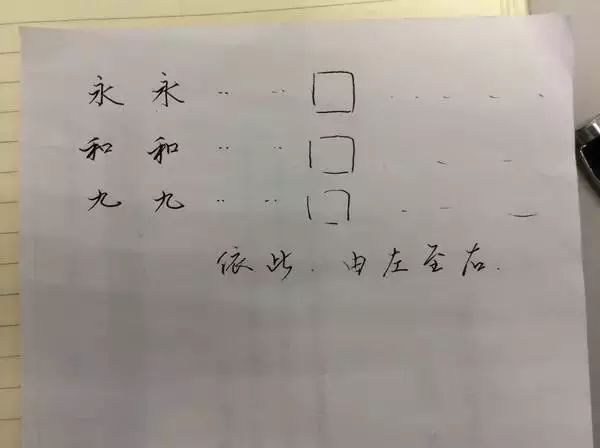 永 永 ‥ ‥ □ . . . . .
和 和 ‥ ‥ □ . .
九 九 ‥ ‥ □ . . .
依此.由左至右.